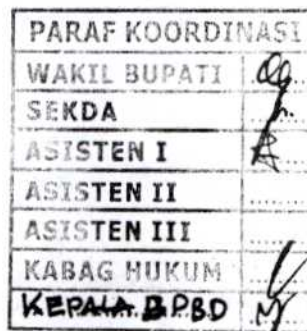 PARAF KOORDINASI
WAKIL BUPATI
SEKDA
ASISTEN I
ASISTEN II
ASISTEN III
KABAG HUKUM
KEPALA BPBD